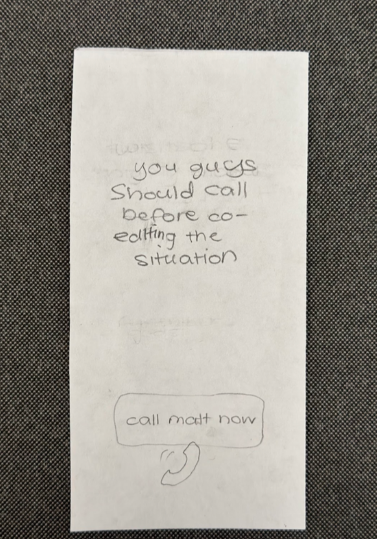 you guys
Should call
before co-
editing the
situation
call matt now